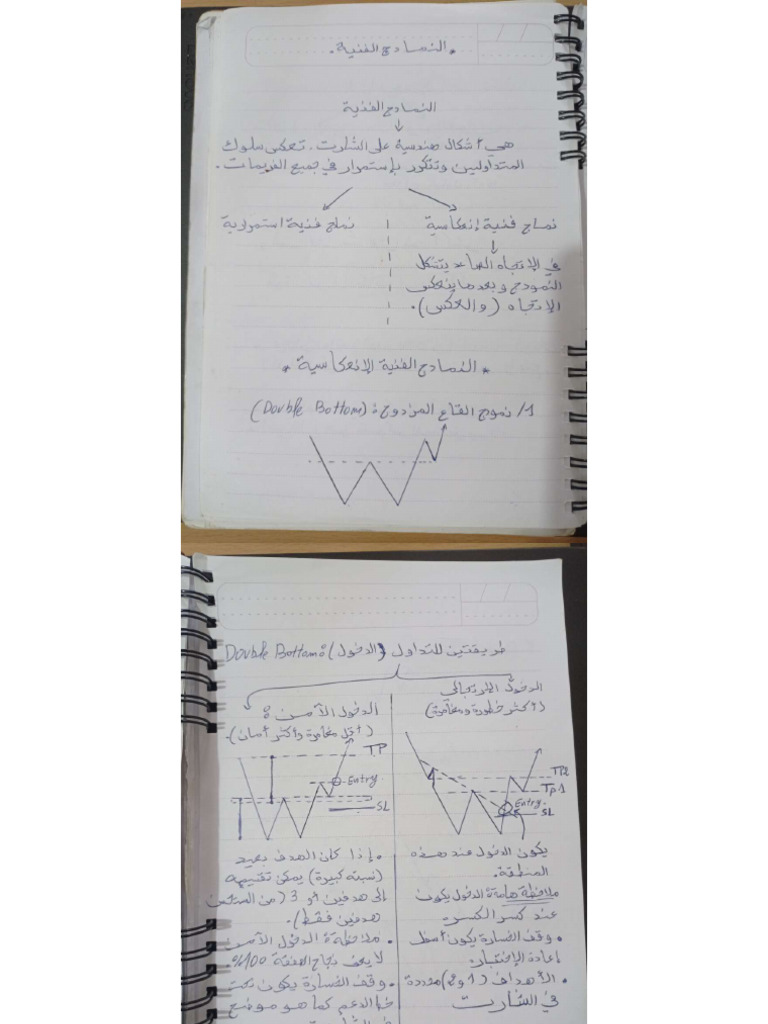 * النمادج الفنية *
النمادج الفنية
هي أشكال هندسية على الشارت، تعكس سلوك
المتداولين وتتكرر بإستمرار في جميع الفريمات.
نماج فنية إنعكاسية
نماج فنية استمرارية
في الإتجاه الصاعد يتشكل
النموذج وبعدها ينعكس
الإتجاه (والعكس).
* النمادج الفنية الإنعكاسية *
1/ نموج القاع المزدوج: (Double Bottom)
طريقتين للتداول (الدخول) Double Bottom:
الدخول الإرتجالي
(أكثر خطورة ومخامرة)
TP2
TP1
Entry
SL
يكون الدخول عند هذه
المنطقة.
ملاحظة هامة: الدخول يكون
عند كسر الكسر.
• وقف الخسارة يكون أسفل
إعادة الإختبار.
• الأهداف (1 و2) محددة
في الشارت
الدخول الآمن:
(أقل مخامرة وأكثر أمان).
TP
Entry
SL
• إذا كان الهدف بعيد
(نسبته كبيرة) يمكن تقسيمه
إلى هدفين أو 3 (من
هدفين فقط).
• ملاحظة: الدخول الآمن
لا يعني نجاح الصفقة 100%.
• وقف الخسارة يكون تحت
خط الدعم كما هو موضح